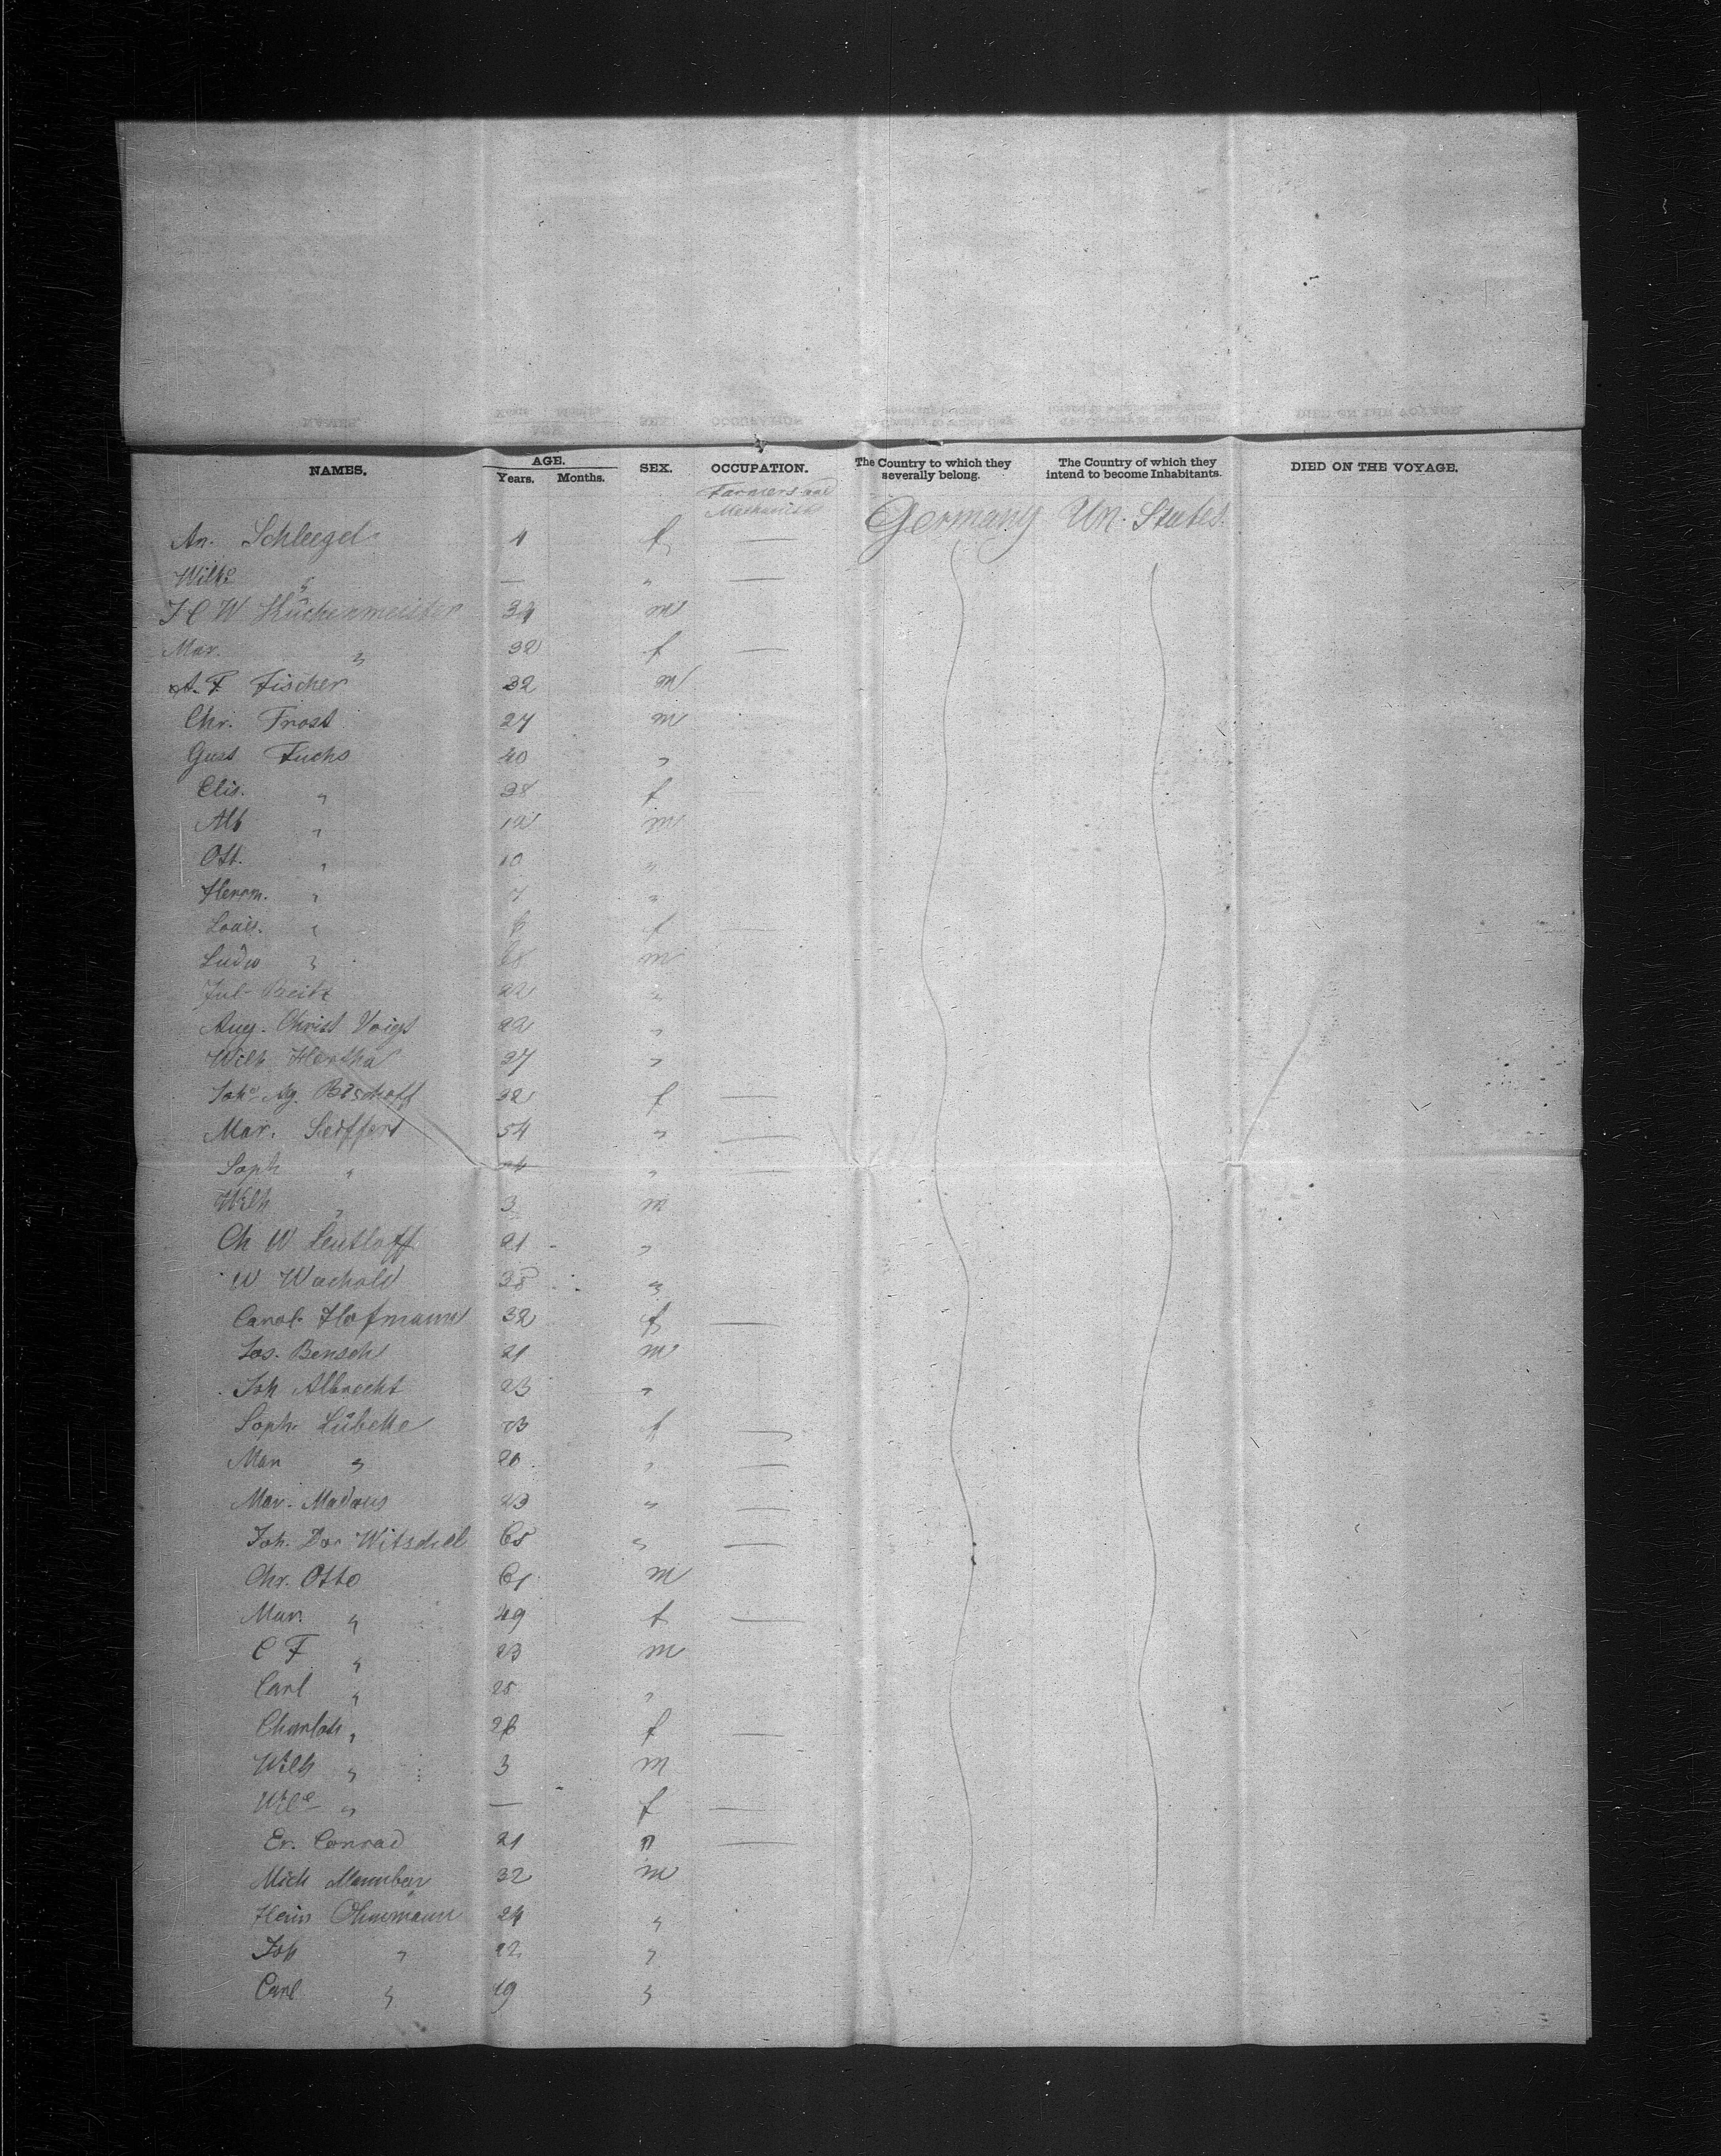 NAMES. AGE. SEX. OCCUPATION. The Country to which they severally belong. The Country of which they intend to become Inhabitants. DIED ON THE VOYAGE.
Years. Months.
Farmers and
Mechanics
Germany Un. States.
An. Schleegel 4 f —
Wilhe " — " —
J C W Küchenmeister 34 m
Mar. " 32 f —
A. F. Fischer 32 m
Chr. Frost 27 m
Gust Fuchs 40 "
Elis. " 38 f —
Alb " 12 m
Ott. " 10 "
Herrm. " 7 "
Louis. " 6 f —
Ludw " m
Jul. 22 "
Aug. Christ Voigt 22 "
Wilh Hertha 27 "
Johe Ag. Bischoff 32 f —
Mar. Seiffert 54 " —
Soph " 24 " —
Wilh " 3 m
Ch W Leutloff 21 "
W Wachold 38 "
Carol. Hofmann 32 f —
Jos. Bensch 21 m
Joh Albrecht 23 "
Soph. Lübcke 23 f —
Mar " 20 " —
Mar. Madaus 23 " —
Joh. Dor Witschel 65 " —
Chr. Otto 61 m
Mar. " 49 f —
C F " 23 m
Carl " 25 "
Charlott " 26 f —
Wilh " 3 m
Wile " — f —
Er. Conrad 21 " —
Mich 32 m
Heinr Ohnemann 24 "
Joh " 22 "
Carl " 19 "